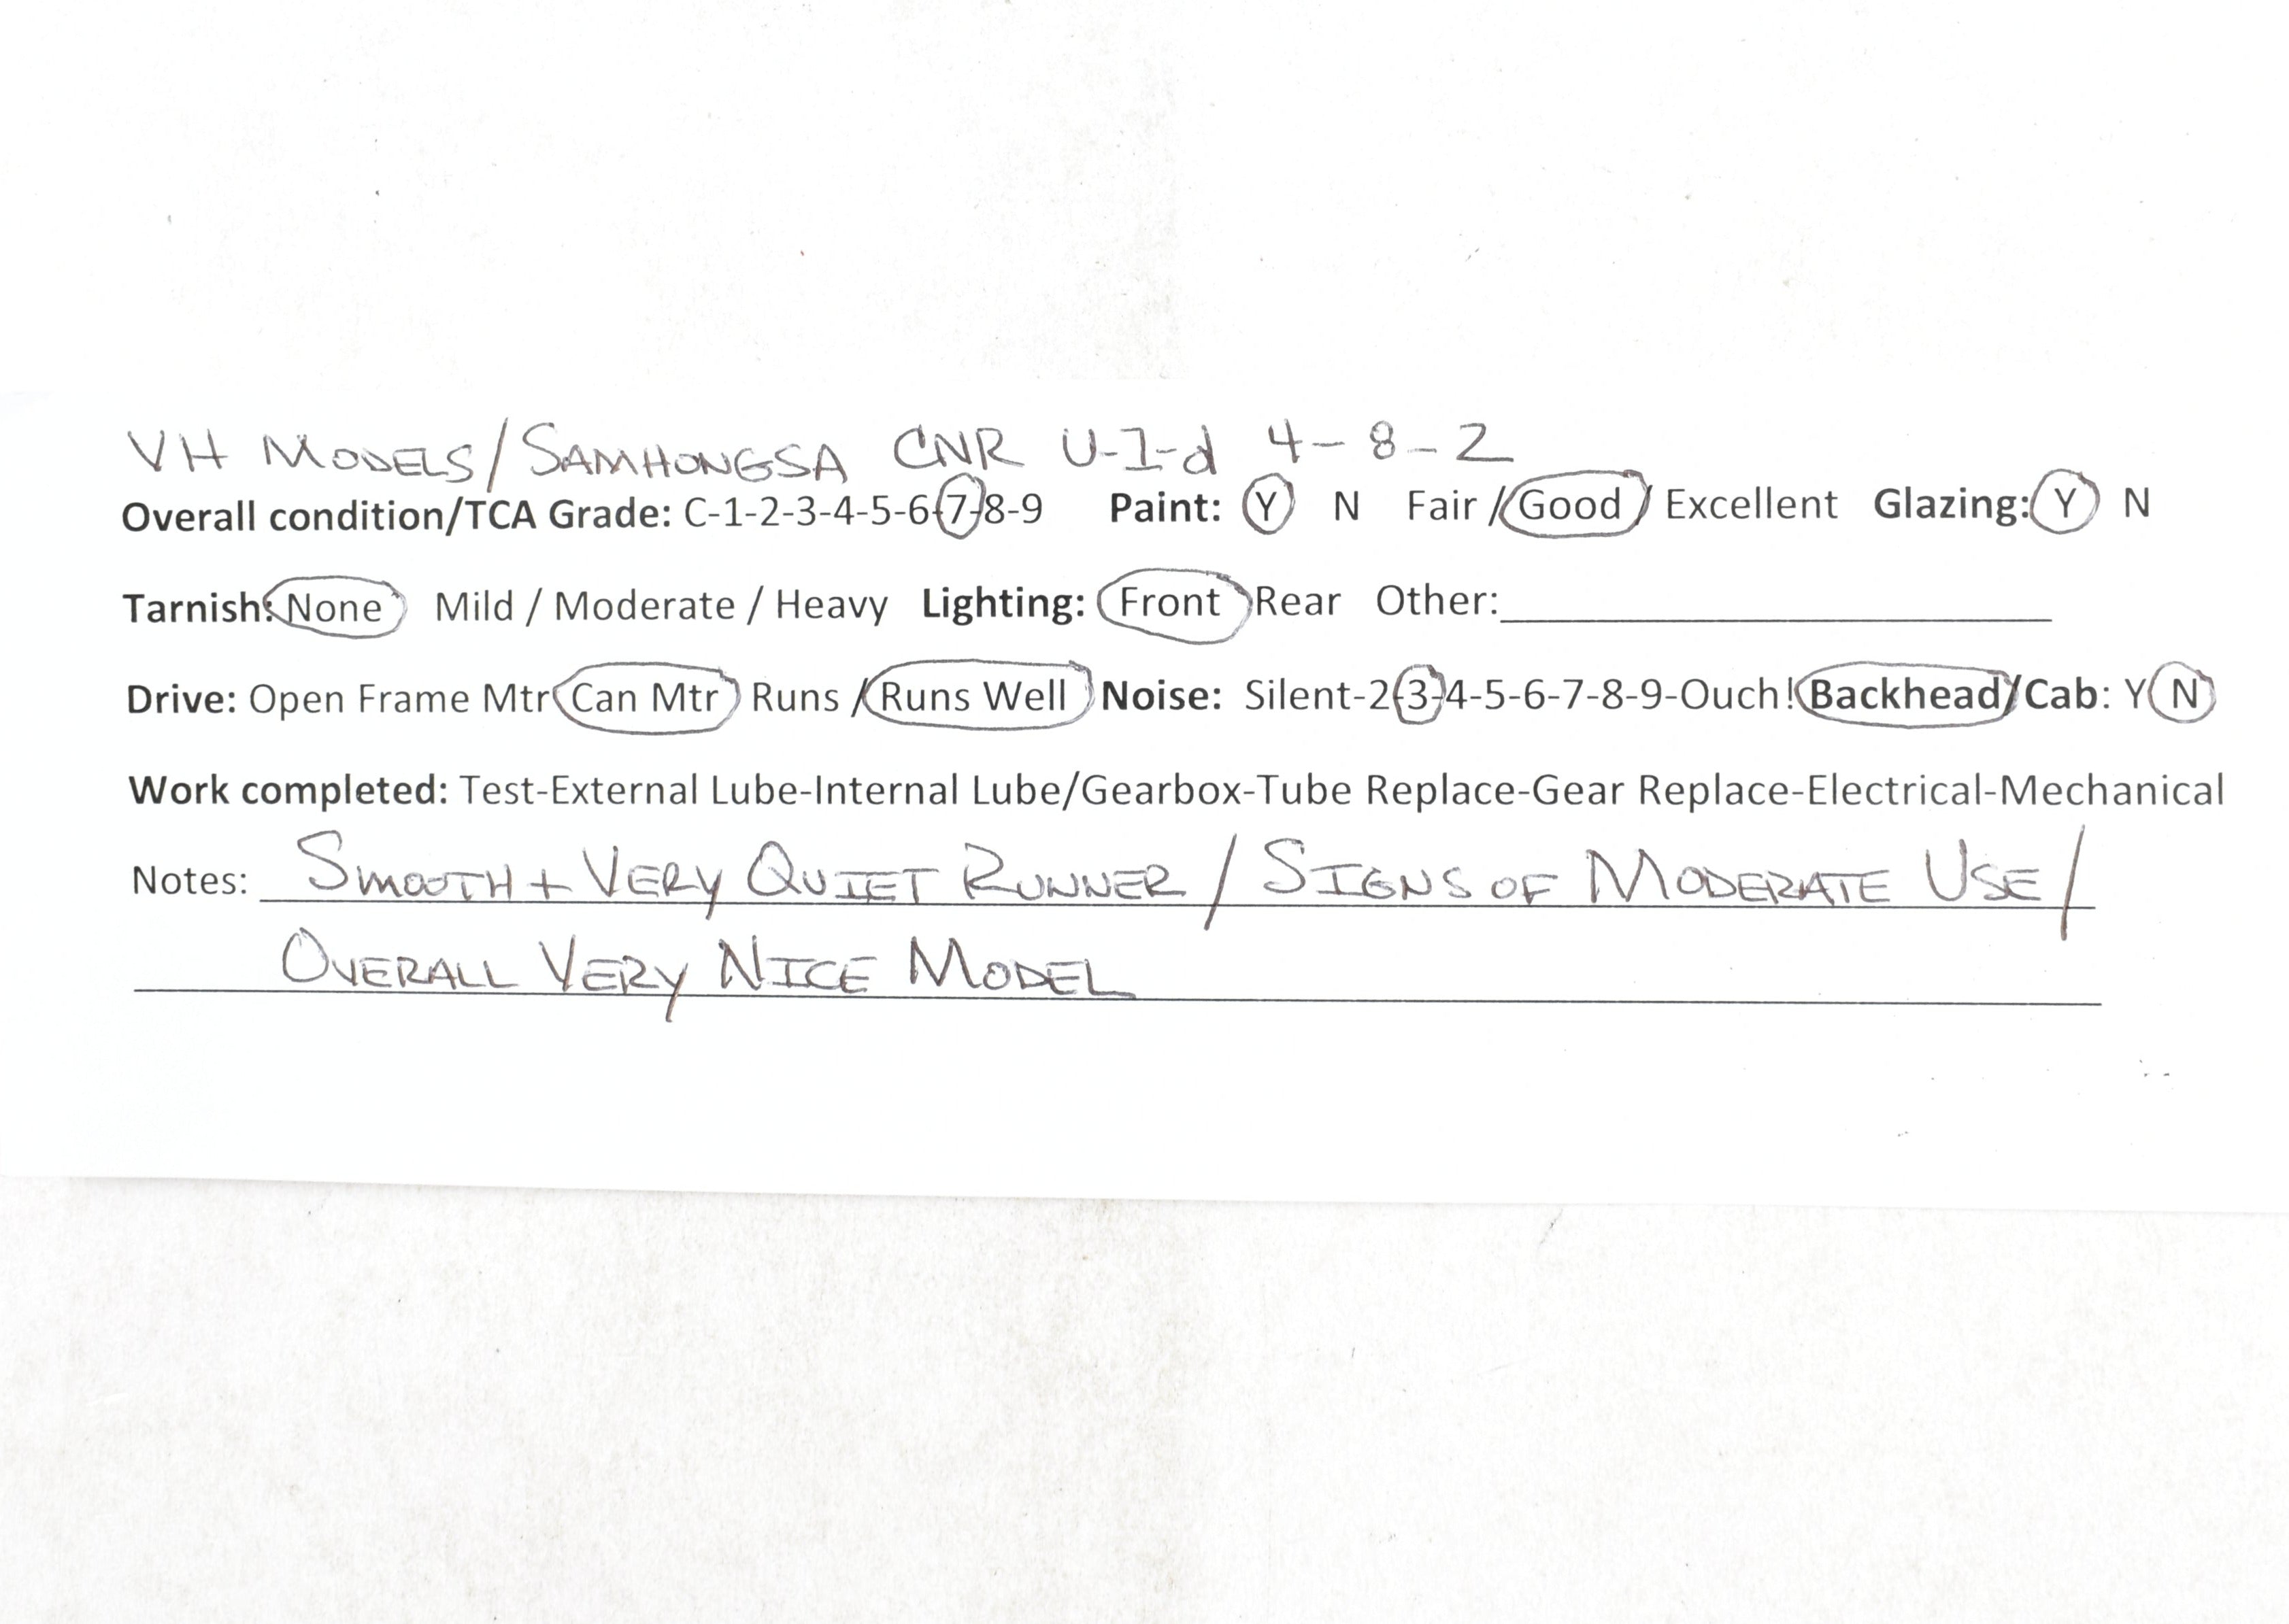 VH MODELS/SAMHONGSA CNR U-1-d 4-8-2
Overall condition/TCA Grade: C-1-2-3-4-5-6-7-8-9 Paint: Y N Fair / Good / Excellent Glazing: Y N
Tarnish: None Mild / Moderate / Heavy Lighting: Front Rear Other:
Drive: Open Frame Mtr Can Mtr Runs / Runs Well Noise: Silent-2-3-4-5-6-7-8-9-Ouch! Backhead/Cab: Y N
Work completed: Test-External Lube-Internal Lube/Gearbox-Tube Replace-Gear Replace-Electrical-Mechanical
Notes: SMOOTH + VERY QUIET RUNNER / SIGNS OF MODERATE USE /
OVERALL VERY NICE MODEL